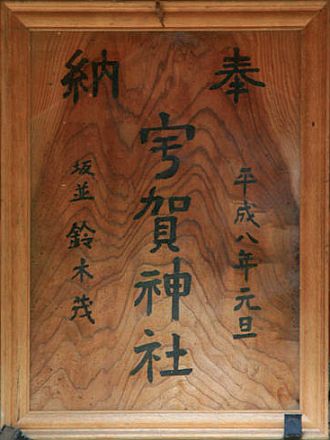 奉納
平成八年元旦
宇賀神社
坂並 鈴木茂